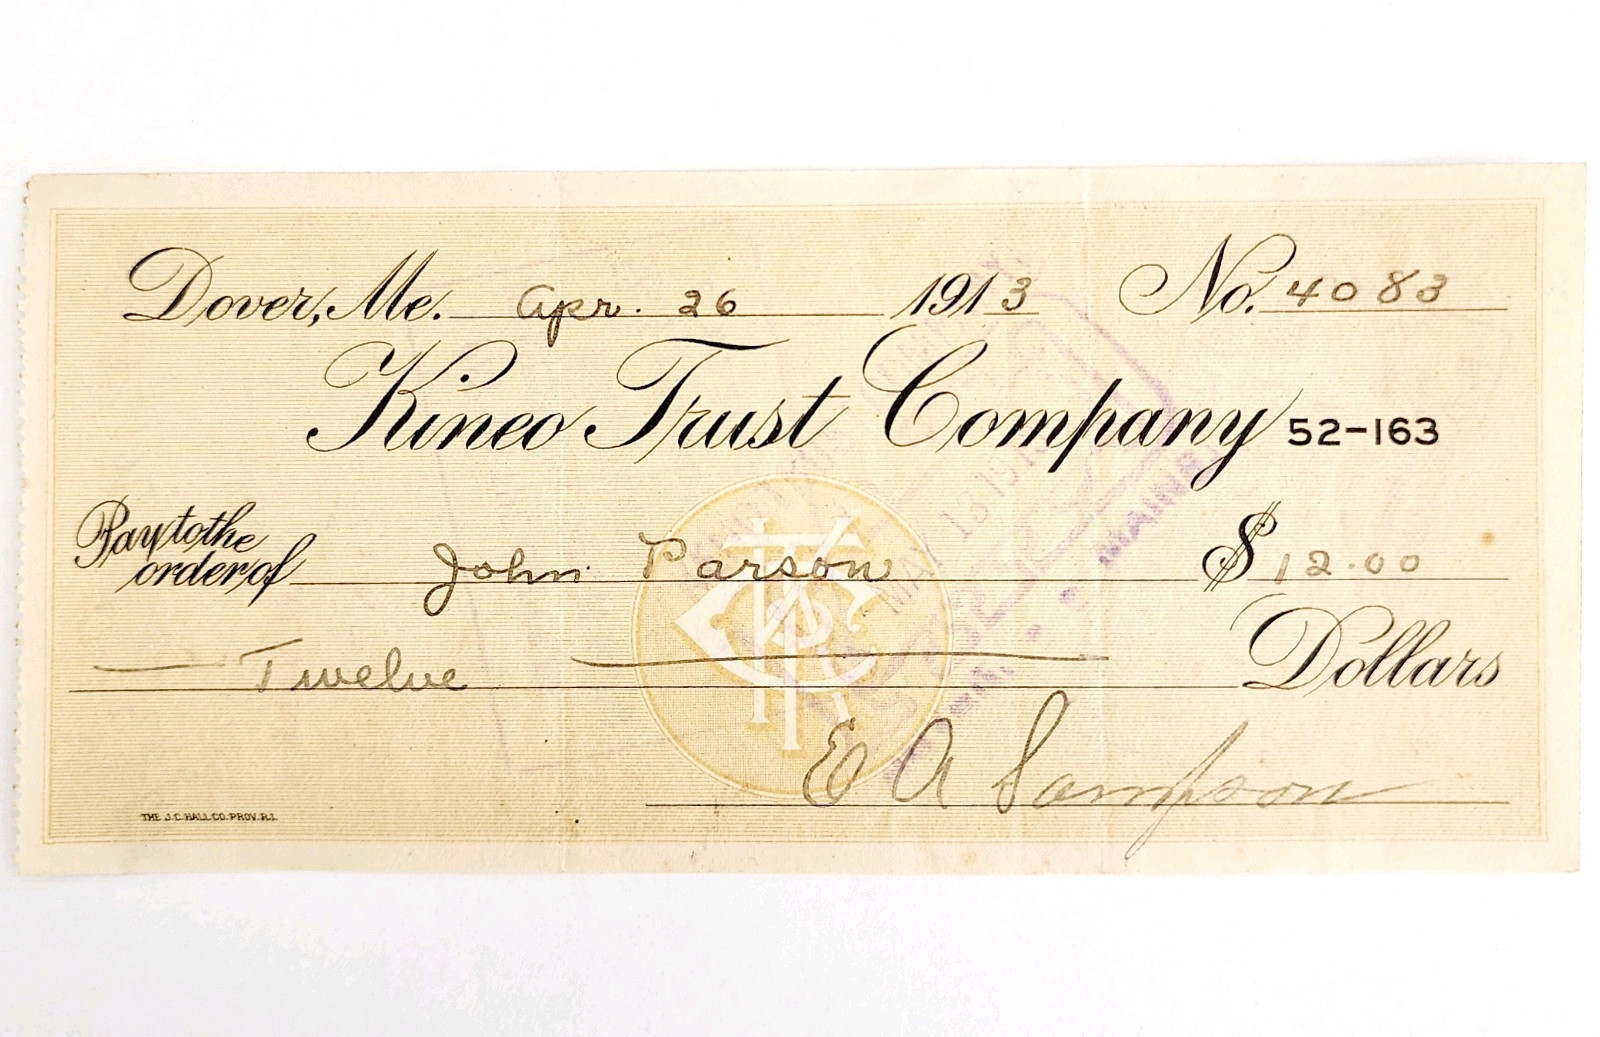 Dover, Me. Apr. 26 1913 No. 4083
Kineo Trust Company 52-163
Pay to the order of John Parson $12.00
Twelve Dollars
E A Sampson
THE J.C. HALL CO. PROV. R.I.
MAY 13 1913
MAINE